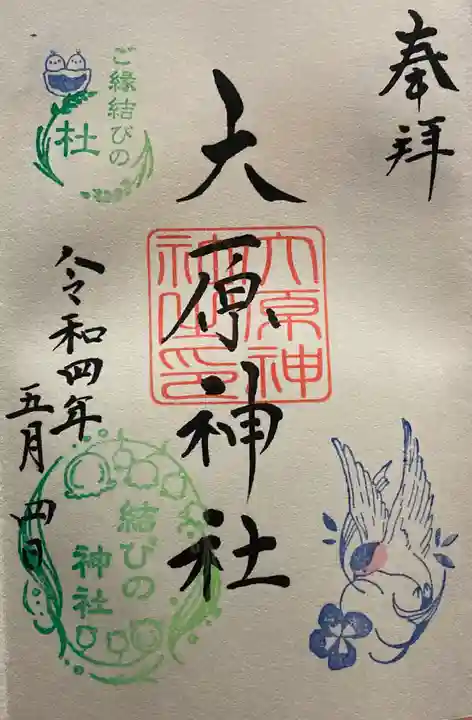 奉拝
大原神社
大原神
社之印
令和四年
五月四日
ご縁結びの
杜
結びの
神社